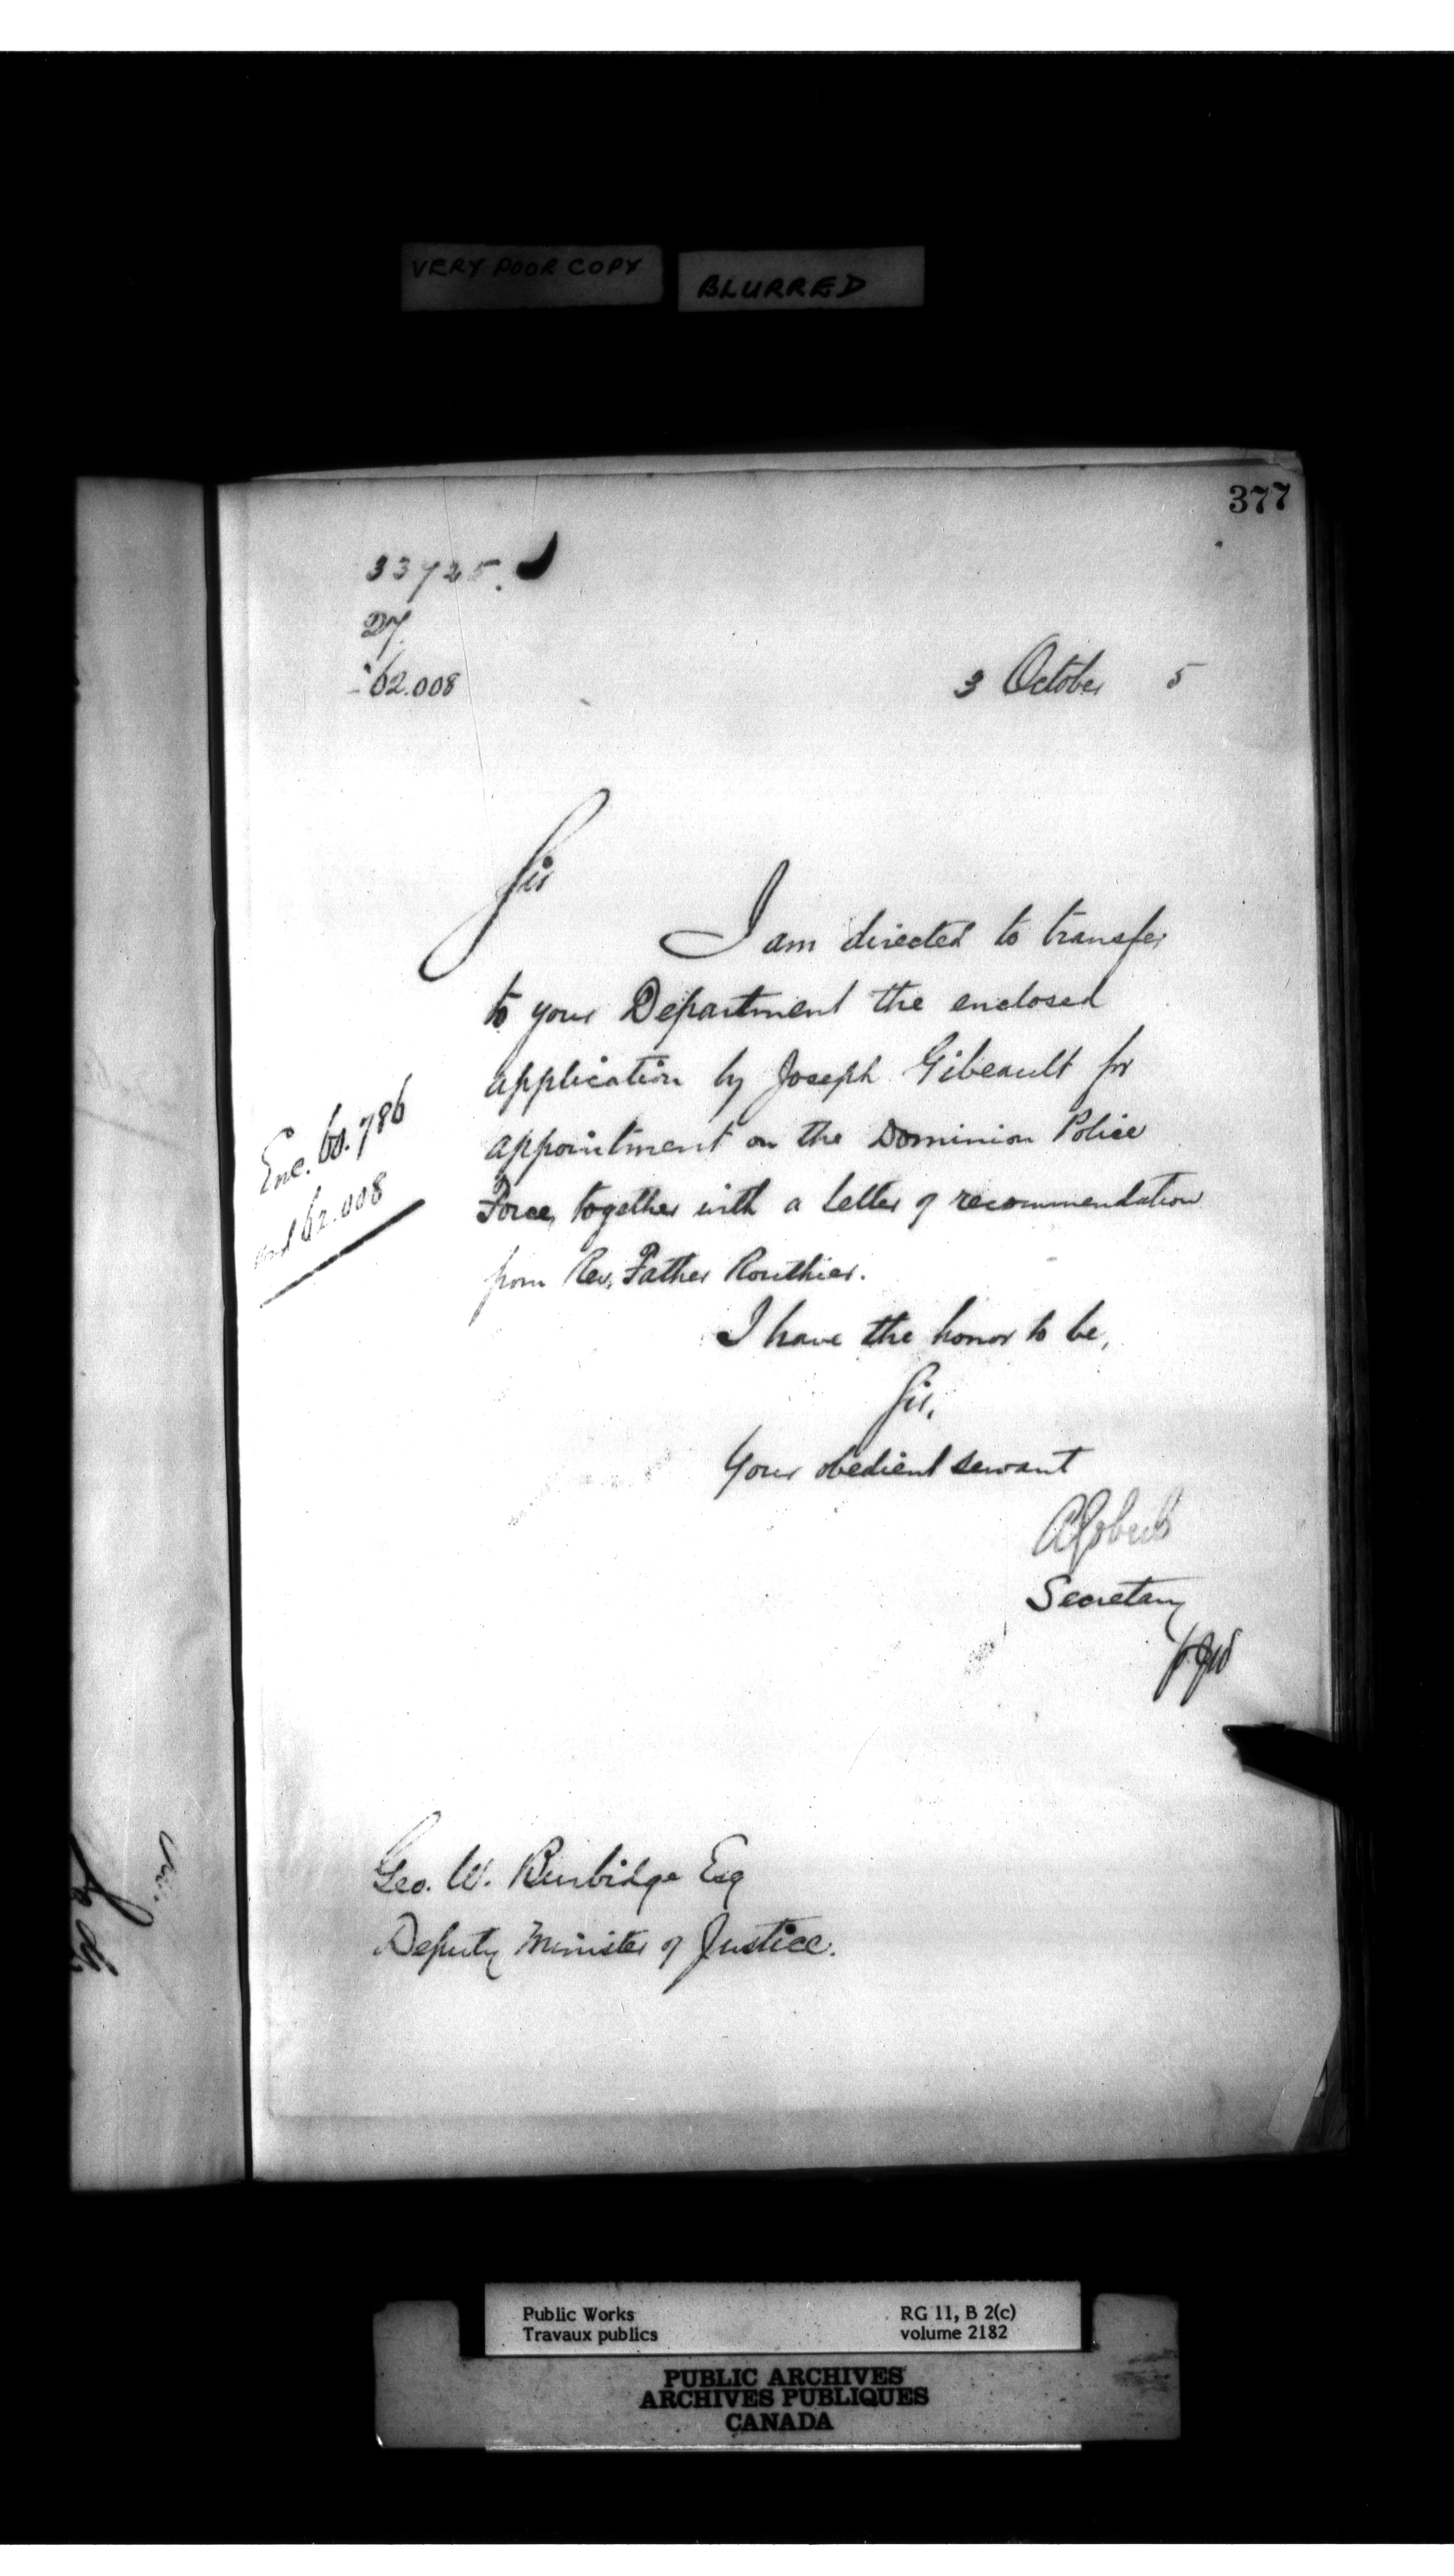 VERY POOR COPY
BLURRED
377
33725.
62.008
3 October 5
Sir
I am directed to transfer
to your Department the enclosed
application by Joseph Gibeault for
appointment on the Dominion Police
Force, together with a letter of recommendation
from Rev. Father Routhier.
Enc. 60.786
and 62.008
I have the honor to be,
Sir,
Your obedient servant
A Gobeil
Secretary
Geo. W. Burbidge Esq
Deputy Minister of Justice.
Public Works
Travaux publics
RG 11, B 2(c)
volume 2182
PUBLIC ARCHIVES
ARCHIVES PUBLIQUES
CANADA